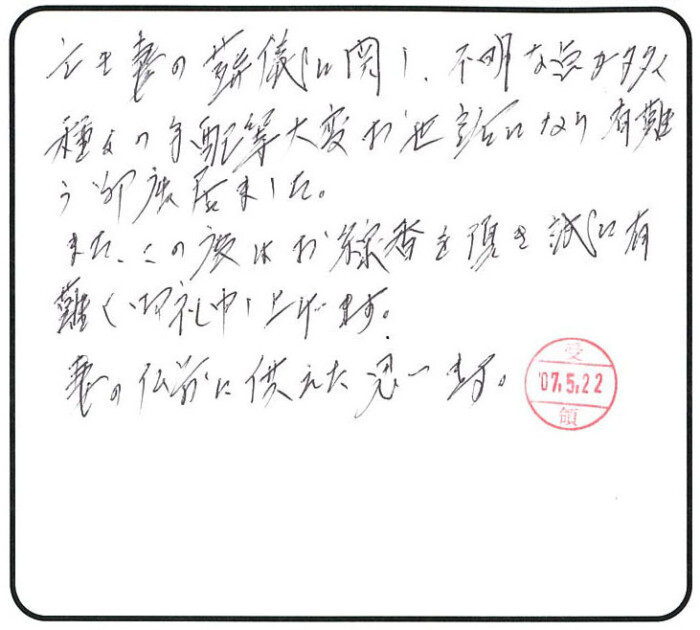 亡き妻の葬儀に関し、不明な点が多々
種々の手配等大変お世話になり有難
う御座居ました。
また、この度はお線香を頂き誠に有
難く御礼申し上げます。
妻の仏前に供えた思います。
受
'07.5.22
領